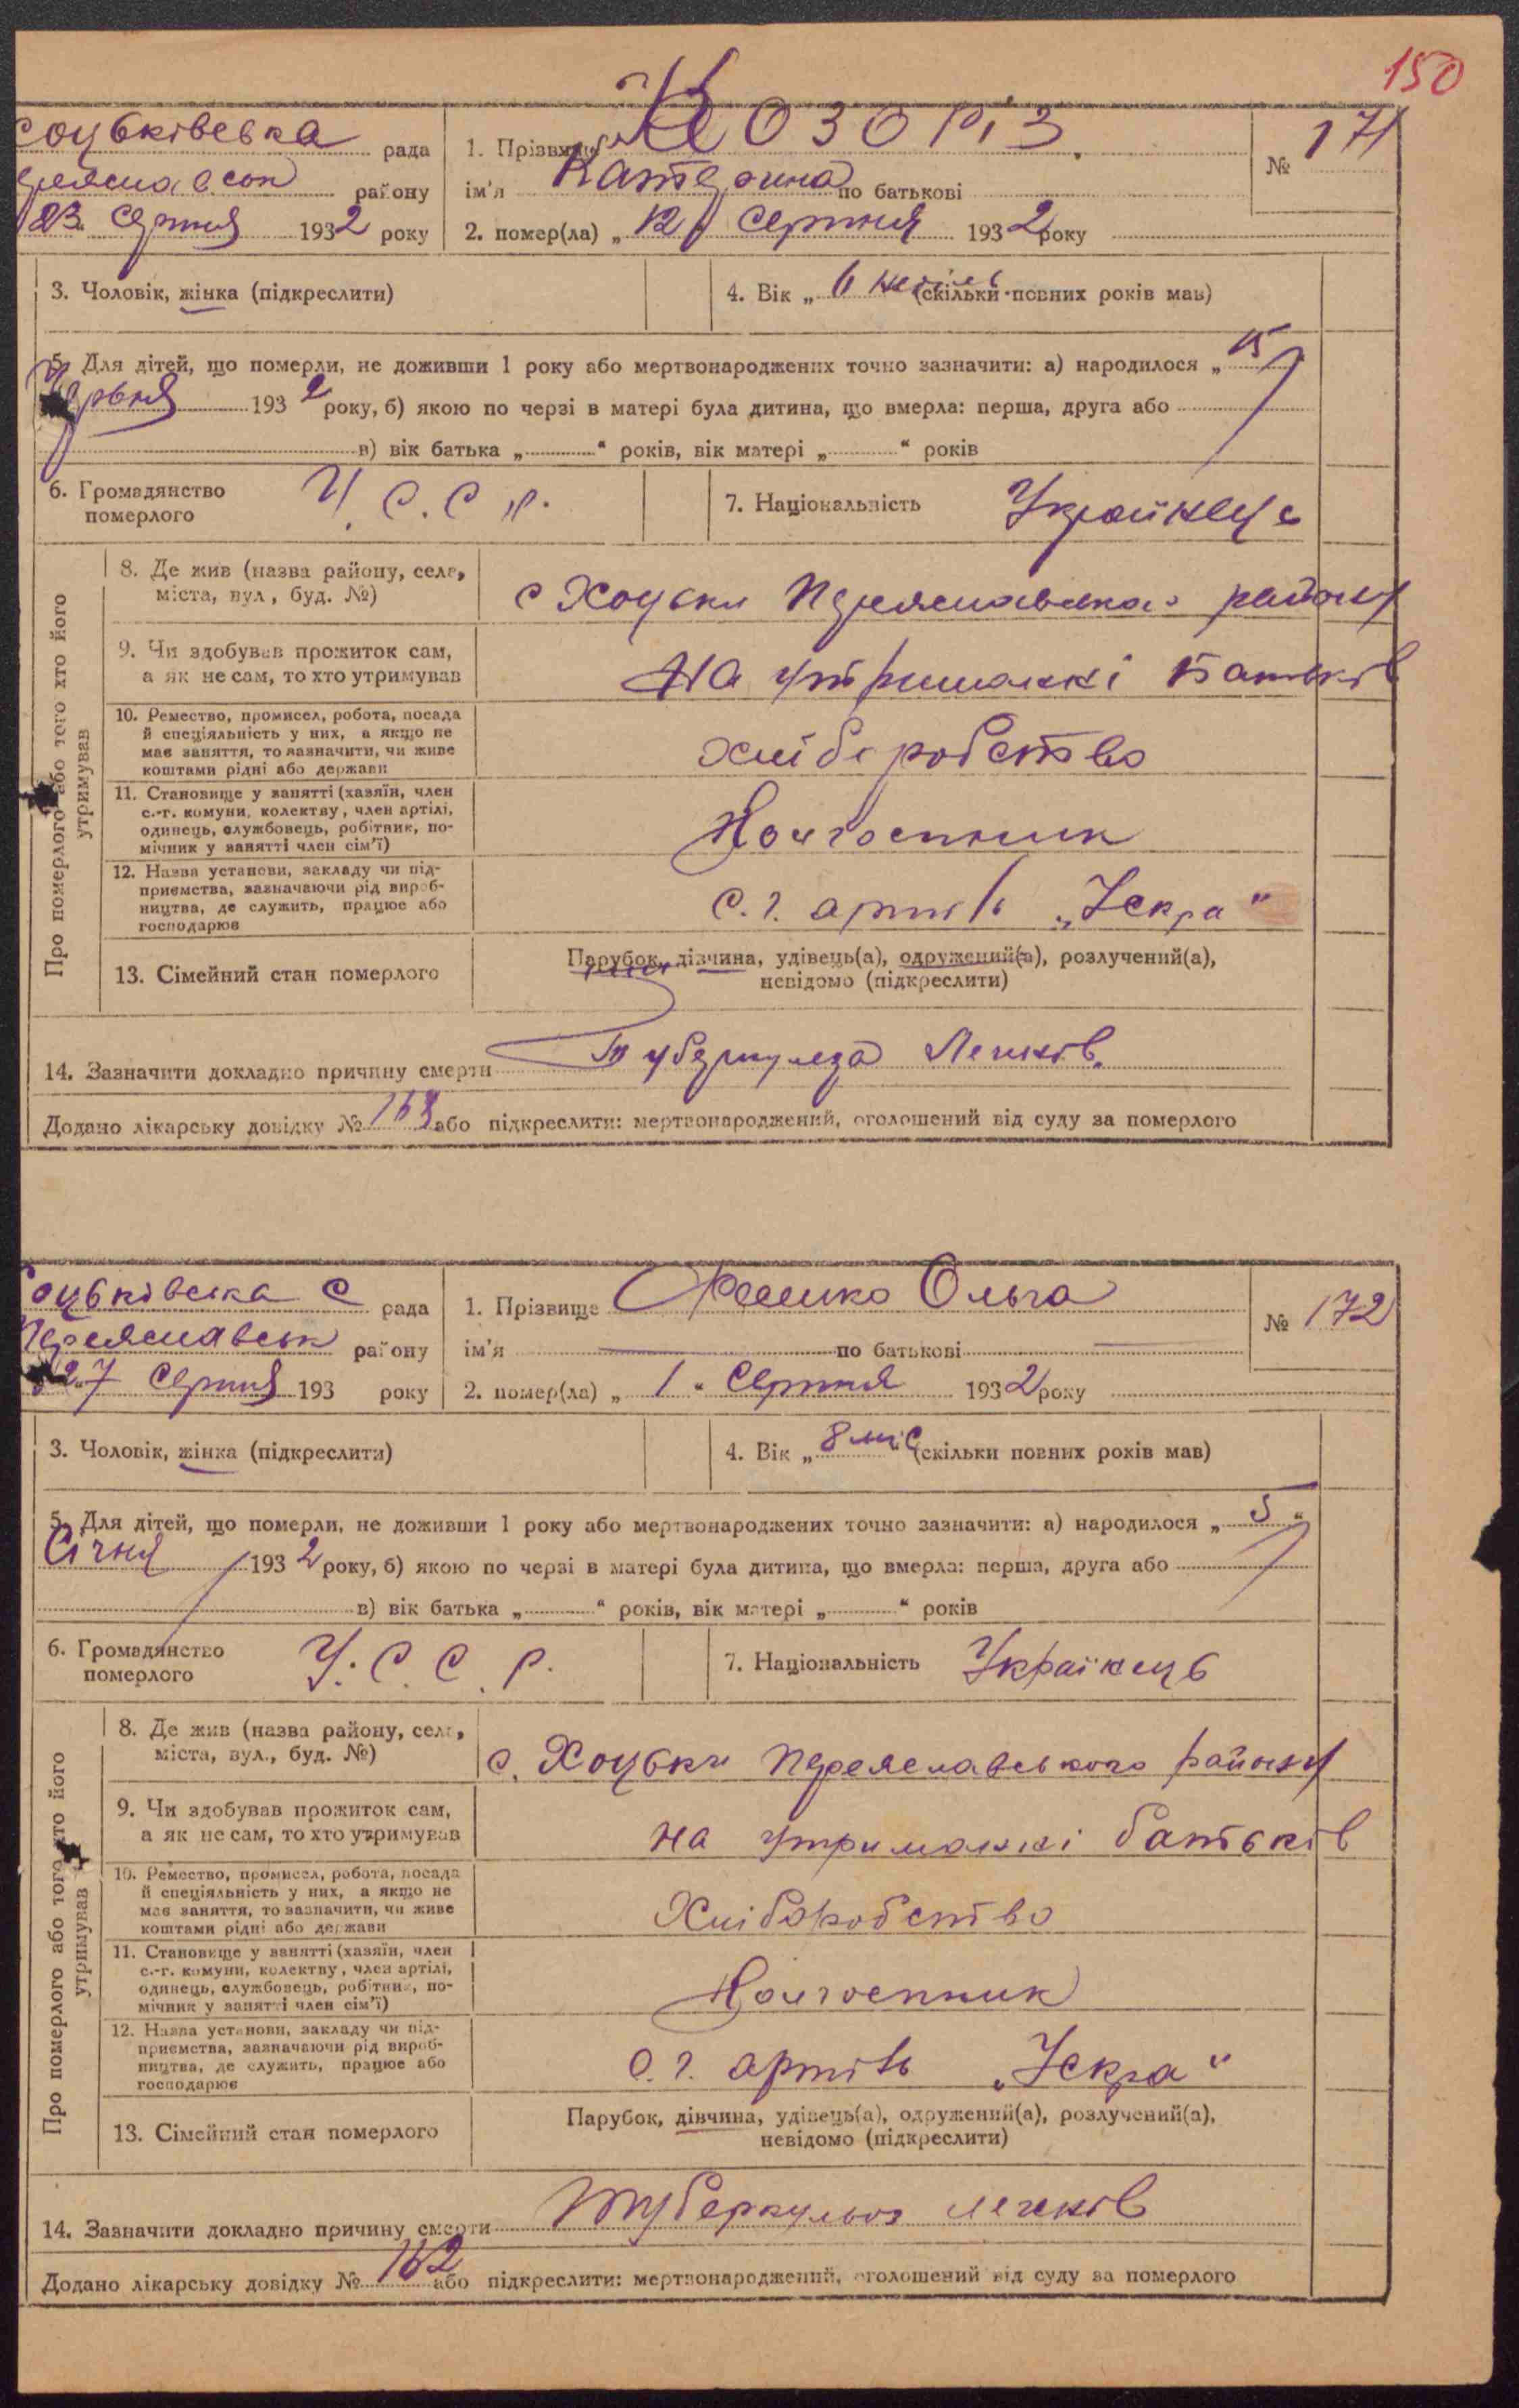 150
Козоріз
оцьківська рада
1. Прізвище
№ 171
району
ім'я Катерина по батькові
23 Серпня 1932 року
2. помер(ла) „12" Серпня 1932 року
3. Чоловік, жінка (підкреслити)
4. Вік „6 неділь (скільки повних років мав)
5. Для дітей, що померли, не доживши 1 року або мертвонароджених точно зазначити: а) народилося „15
Червня 1932 року, б) якою по черзі в матері була дитина, що вмерла: перша, друга або
в) вік батька „ “ років, вік матері „ “ років
6. Громадянство
померлого
У. С. С. Р.
7. Національність Українець
Про померлого або того хто його
утримував
8. Де жив (назва району, села,
міста, вул., буд. №)
с Хоцьки Переяславсько района
9. Чи здобував прожиток сам,
а як не сам, то хто утримував
На утриманні Батьків
10. Ремество, промисел, робота, посада
й спеціяльність у них, а якщо не
має заняття, то зазначити, чи живе
коштами рідні або держави
хліборобство
11. Становище у занятті (хазяїн, член
с.-г. комуни, колектву, член артілі,
одинець, службовець, робітник, по-
мічник у занятті член сім'ї)
Колгоспник
12. Назва установи, закладу чи під-
приємства, зазначаючи рід вироб-
ництва, де служить, працює або
господарює
С. г. артіль „Іскра"
13. Сімейний стан померлого
Парубок, дівчина, удівець(а), одружений(а), розлучений(а),
невідомо (підкреслити)
14. Зазначити докладно причину смерти Туберкулеза Легків.
Додано лікарську довідку № або підкреслити: мертвонароджений, оголошений від суду за померлого
оцьківська С рада
1. Прізвище Ольга
№ 172
Переяславськ району
ім'я — по батькові —
27 Серпня 193 року
2. помер(ла) „1" Серпня 1932 року
3. Чоловік, жінка (підкреслити)
4. Вік „8 міс (скільки повних років мав)
5. Для дітей, що померли, не доживши 1 року або мертвонароджених точно зазначити: а) народилося „5“
Січня 1932 року, б) якою по черзі в матері була дитина, що вмерла: перша, друга або
в) вік батька „ “ років, вік матері „ “ років
6. Громадянство
померлого
У. С. С. Р.
7. Національність Українець
Про померлого або того хто його
утримував
8. Де жив (назва району, села,
міста, вул., буд. №)
с. Хоцьки Переяславського району
9. Чи здобував прожиток сам,
а як не сам, то хто утримував
на утриманні батьків
10. Ремество, промисел, робота, посада
й спеціяльність у них, а якщо не
має заняття, то зазначити, чи живе
коштами рідні або держави
Хліборобство
11. Становище у занятті (хазяїн, член
с.-г. комуни, колектву, член артілі,
одинець, службовець, робітник, по-
мічник у занятті член сім'ї)
Колгоспник
12. Назва установи, закладу чи під-
приємства, зазначаючи рід вироб-
ництва, де служить, працює або
господарює
С. г. артіль „Іскра"
13. Сімейний стан померлого
Парубок, дівчина, удівець(а), одружений(а), розлучений(а),
невідомо (підкреслити)
14. Зазначити докладно причину смерти Туберкульоз легків
Додано лікарську довідку № 162 або підкреслити: мертвонароджений, оголошений від суду за померлого